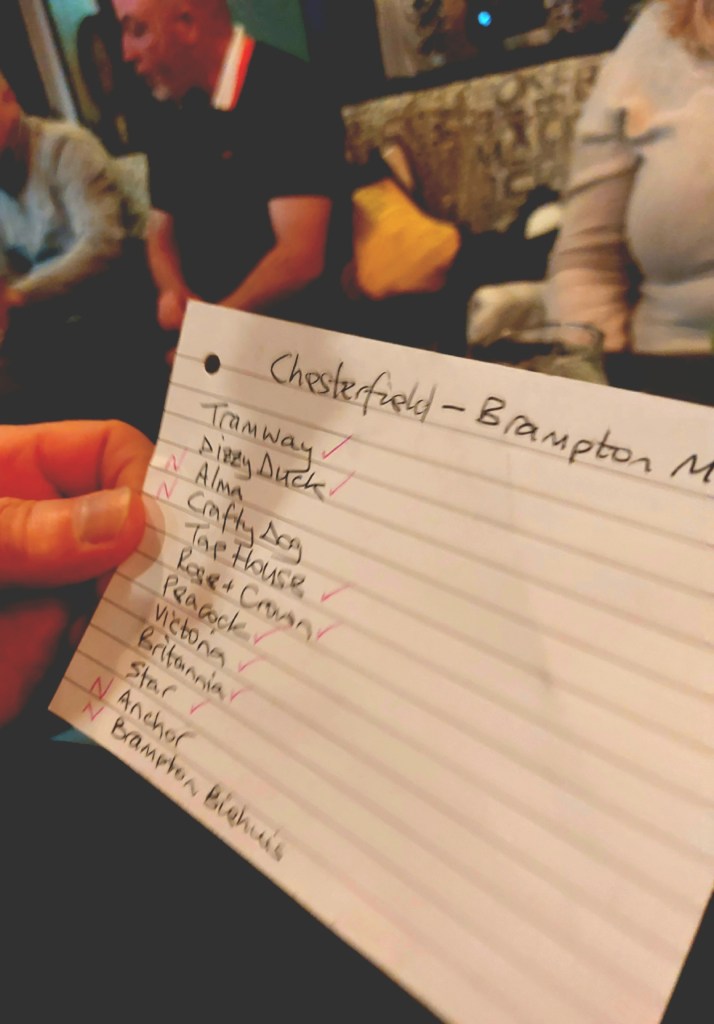 Chesterfield - Brampton M
Tramway ✓
Dizzy Duck ✓
N Alma
N Crafty Dog
Tap House ✓
Rose + Crown ✓
Peacock ✓
Victoria ✓
Britannia ✓
Star ✓
N Anchor
N Brampton Biehuis